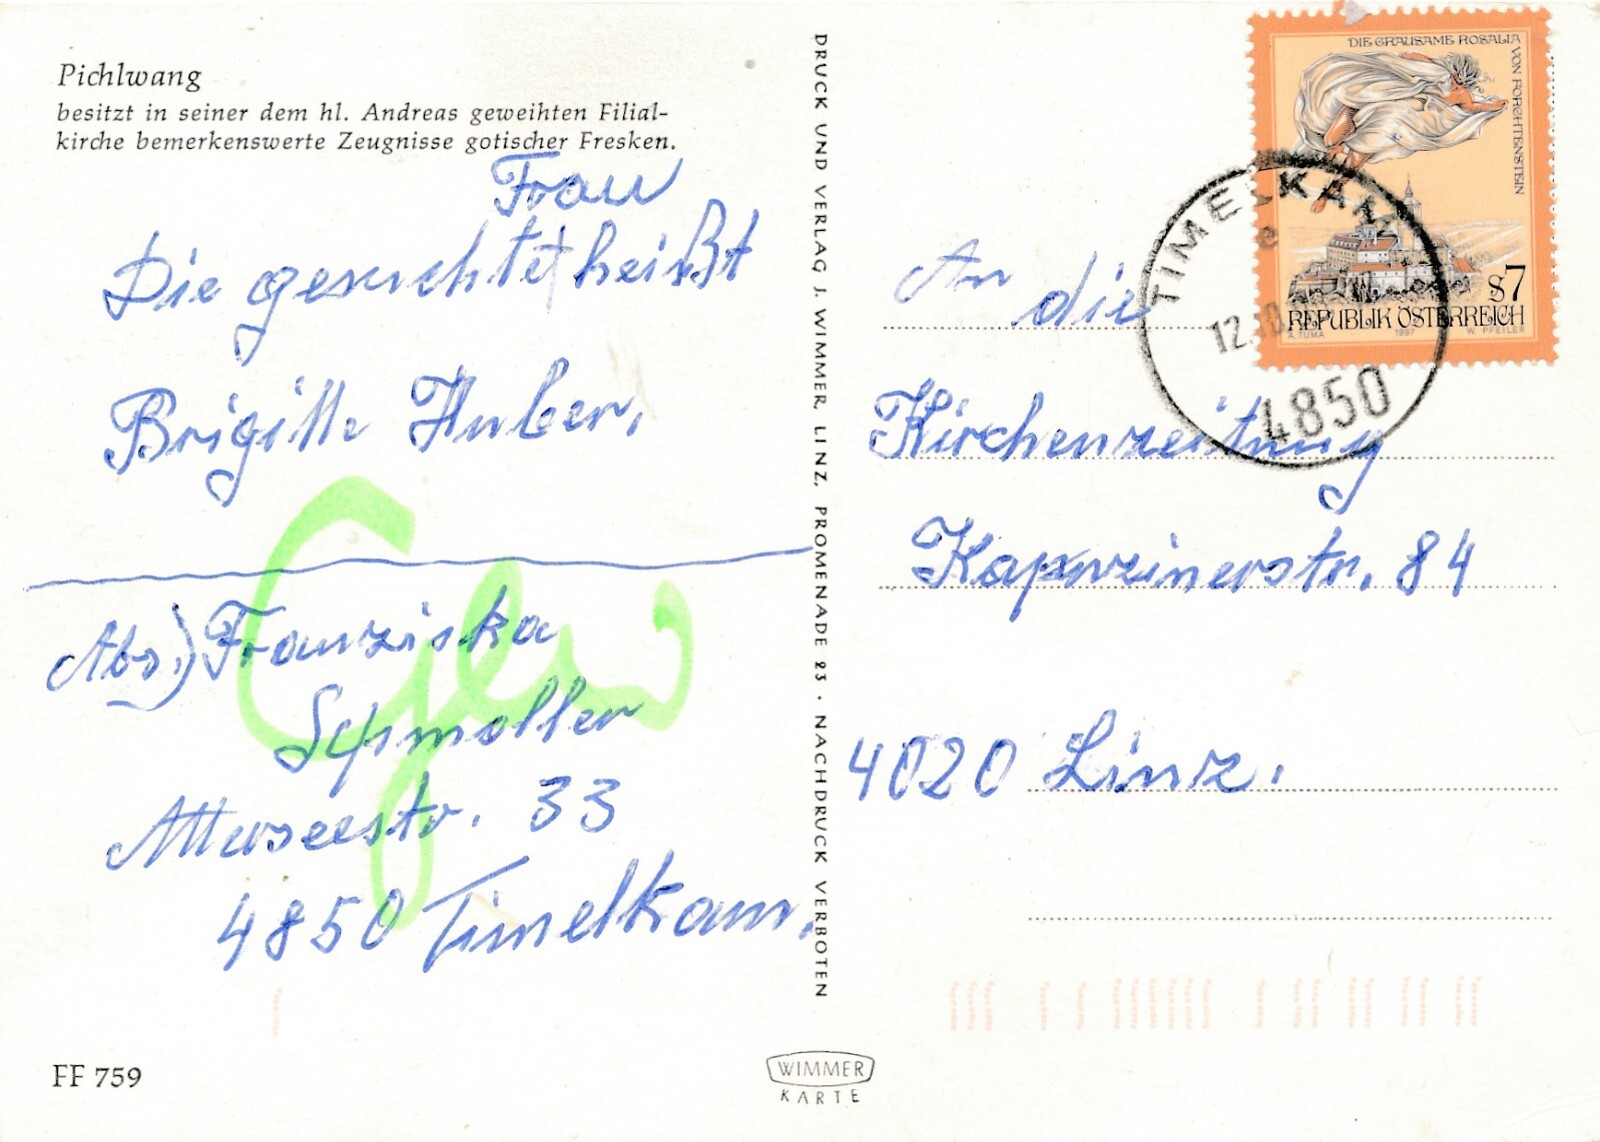 Pichlwang
besitzt in seiner dem hl. Andreas geweihten Filial-
kirche bemerkenswerte Zeugnisse gotischer Fresken.
Frau
Die gesuchte heißt
Brigitte Huber,
Abs.) Franziska
Schmoller
Atterseestr. 33
4850 Timelkam.
FF 759
DRUCK UND VERLAG J. WIMMER, LINZ, PROMENADE 23 · NACHDRUCK VERBOTEN
WIMMER
KARTE
DIE GRAUSAME ROSALIA
VON FORCHTENSTEIN
S7
REPUBLIK ÖSTERREICH
A. TUMA 1997 W. PFEILER
TIMELKAM
12.10.
4850
An die
Kirchenzeitung
Kapuzinerstr. 84
4020 Linz.